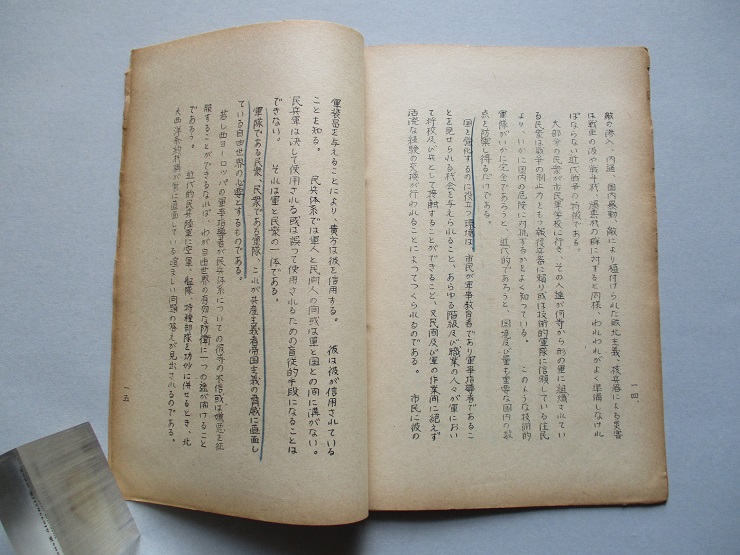 敵の潜入、内通、国内暴動、敵により植付けられた敗北主義、核兵器による災害
は戦車の波や戦斗機、爆撃機の群に対すると同様、われわれがよく準備しなけれ
ばならない近代的脅の斫徴である。
大部分の民衆が市民軍学校に行き、その人達が何等から形の軍に組織されてい
る民衆は戦争の制止力ともつ報復兵器に頼り或は技術的軍隊に信頼している住民
より、いかに国内の危険に対抗するかをよく知っている。 このような技術的
軍隊がいかに完全であろうと、近代的であろうと、国境及び最も重要な国内の数
点を防禦し得るだけである。
国を強化するのに役立つ環境は、市民が軍事教育者であり軍事指導者であるこ
とを見せられる機会を与えられること、あらゆる階級及び職業の人々が軍におい
て将校及び兵として接触することができること、又民間及び軍の作業間に絶えず
活溌な経験の交換が行われることによってつくられるのである。 市民に彼の
一四
軍装備を与えることにより、貴方は彼を信用する。 彼は彼が信用されている
ことを知る。 民兵体系では軍人と民間人の間或は軍と国との間に溝がない。
民兵軍は決して使用される或は誤って使用されるための盲従的手段になることは
できない。 それは軍と民衆の一体である。
軍隊である民衆、民衆である軍隊、これが共産主義者帝国主義の脅威に直面し
ている自由世界の必要とするものである。
若し西ヨーロッパの軍事指導者が民兵体系についての彼等の不信或は嫌悪を征
服することができるなれば、わが自由世界の有効な防衛に一つの道が開けること
であろう。 近代的民兵陸軍に空軍、艦隊、特種部隊を巧妙に併せるとき、北
大西洋条約我構が常に直面している煩わしい問題の答えが見出されるのである。
一五